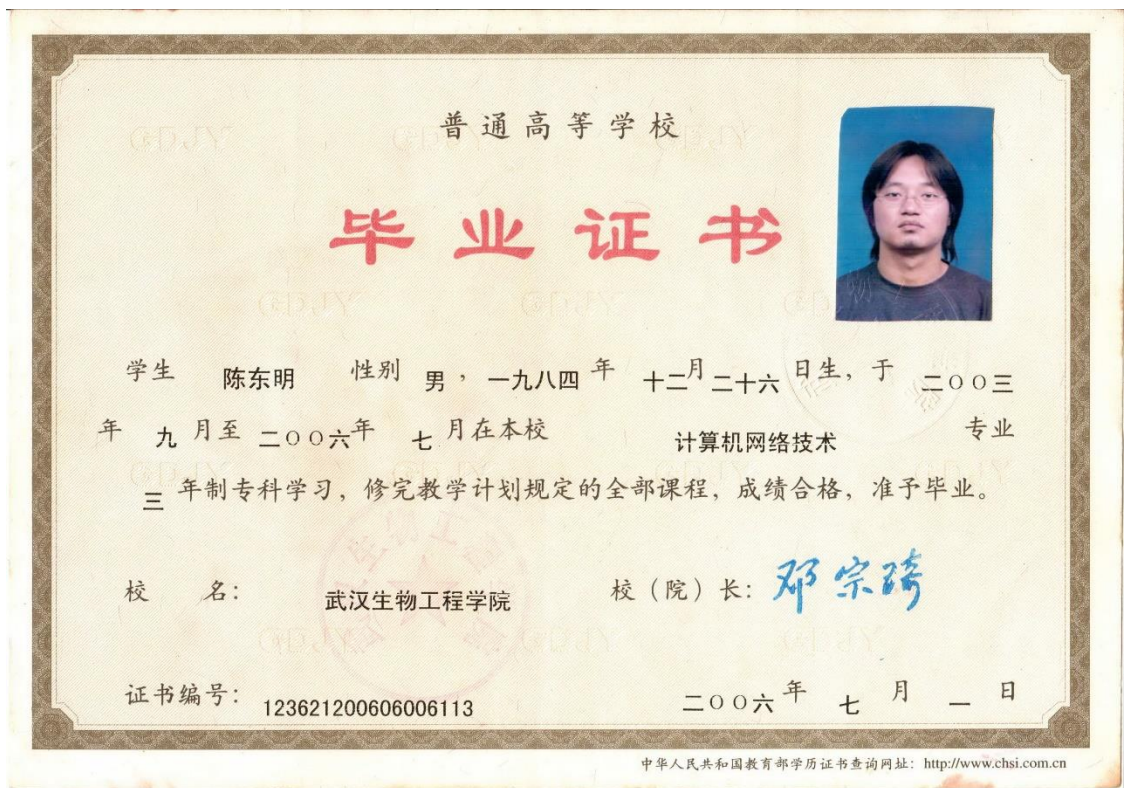 普通高等学校
毕业证书
学生 陈东明 性别 男，一九八四年 十二月二十六日生，于 二〇〇三
年 九 月至 二〇〇六年 七 月在本校 计算机网络技术 专业
三 年制专科学习，修完教学计划规定的全部课程，成绩合格，准予毕业。
校 名： 武汉生物工程学院 校（院）长：邓宗琦
证书编号：123621200606006113 二〇〇六年 七 月 一 日
中华人民共和国教育部学历证书查询网址：http://www.chsi.com.cn